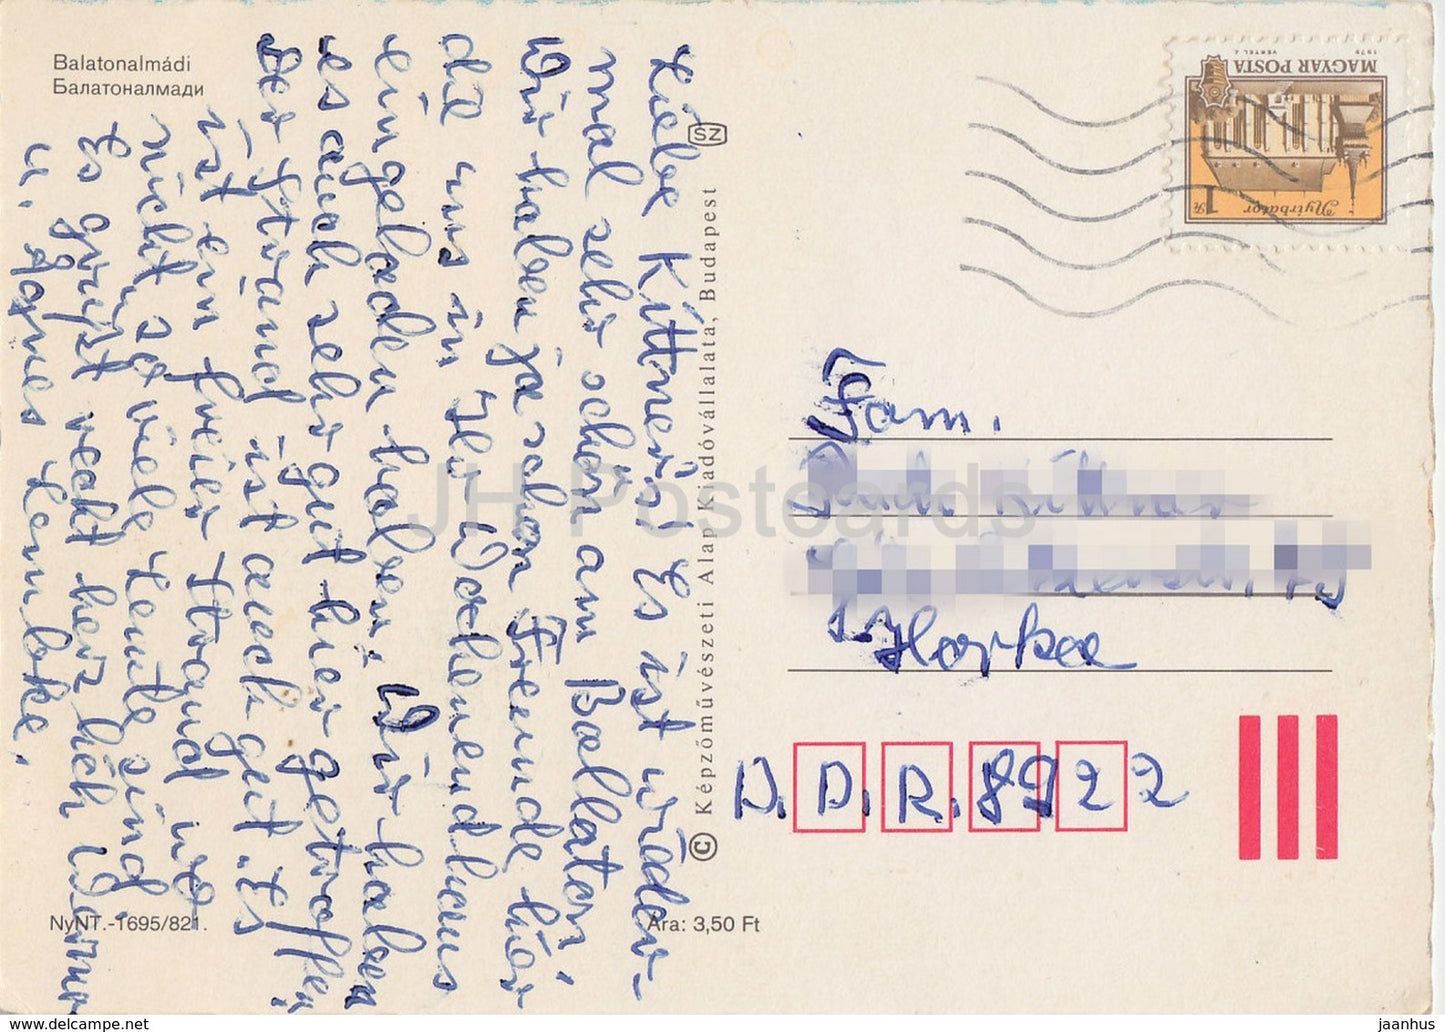 Balatonalmádi
Балатоналмади
Liebe Kittners! Es ist wieder-
mal sehr schön am Ballaton.
Wir haben ja schon Freunde hier
die uns in Ihr Wochenendhaus
eingeladen haben. Wir haben
es auch sehr gut hier getroffen.
Der Strand ist auch gut. Es
ist ein freier Strand wo
nicht so viele Leute sind.
Es grüßt recht herzlich Werner
u. Agnes Lembke.
NyNT.-1695/821.
Ára: 3,50 Ft
© Képzőművészeti Alap Kiadóvállalata, Budapest
SZ
MAGYAR POSTA
1979
VERTEL J.
Nyírbátor
1 Ft
Fam.
Kittner
Horka
D.D.R. 8922
JH Postcards
jaanhus
https://www.delcampe.net